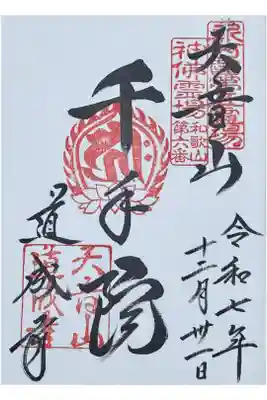 天音山
神佛霊場
和歌山
第六番
令和七年
十二月卅一日
千手院
道成寺
天音山
道成寺